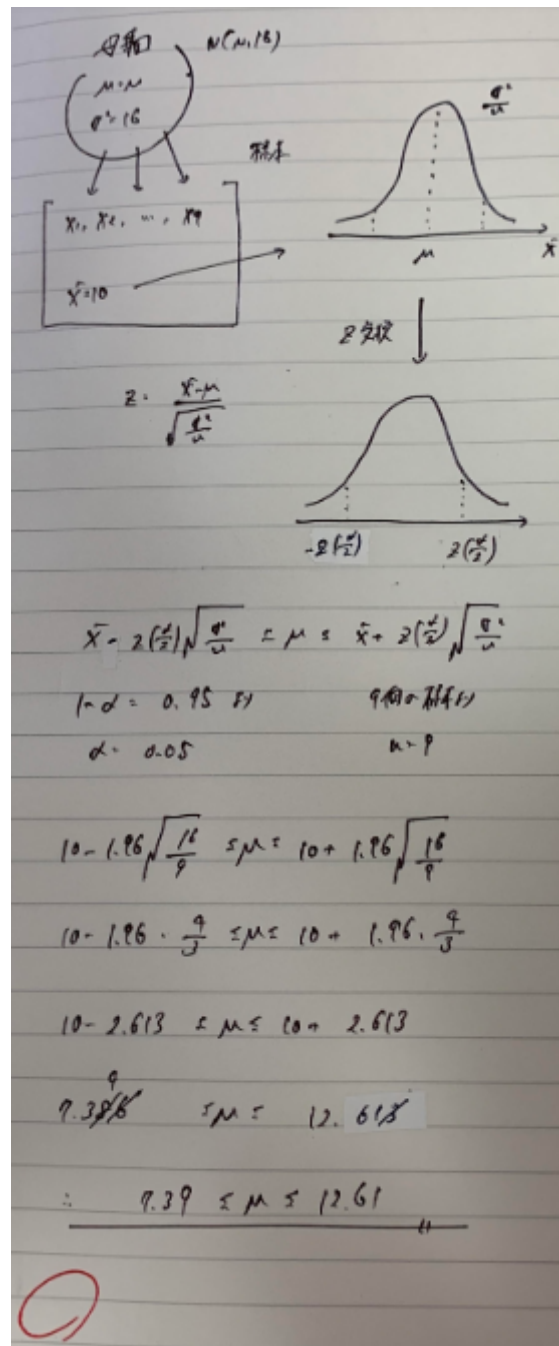 N(μ,16)
μ=μ
σ²=16
標本
x₁, x₂, …, x₉
x̄=10
σ²/n
μ
x̄
Z変換
z = (x̄-μ)/√(σ²/n)
-z(α/2) z(α/2)
x̄ - z(α/2)√(σ²/n) ≤ μ ≤ x̄ + z(α/2)√(σ²/n)
1-α = 0.95 より 9個の標本より
α = 0.05 n=9
10-1.96√(16/9) ≤μ≤ 10+1.96√(16/9)
10-1.96・4/3 ≤μ≤ 10+ 1.96・4/3
10-2.613 ≤ μ ≤ 10+ 2.613
≤μ≤ 12.613
∴ 7.39 ≤ μ ≤ 12.61